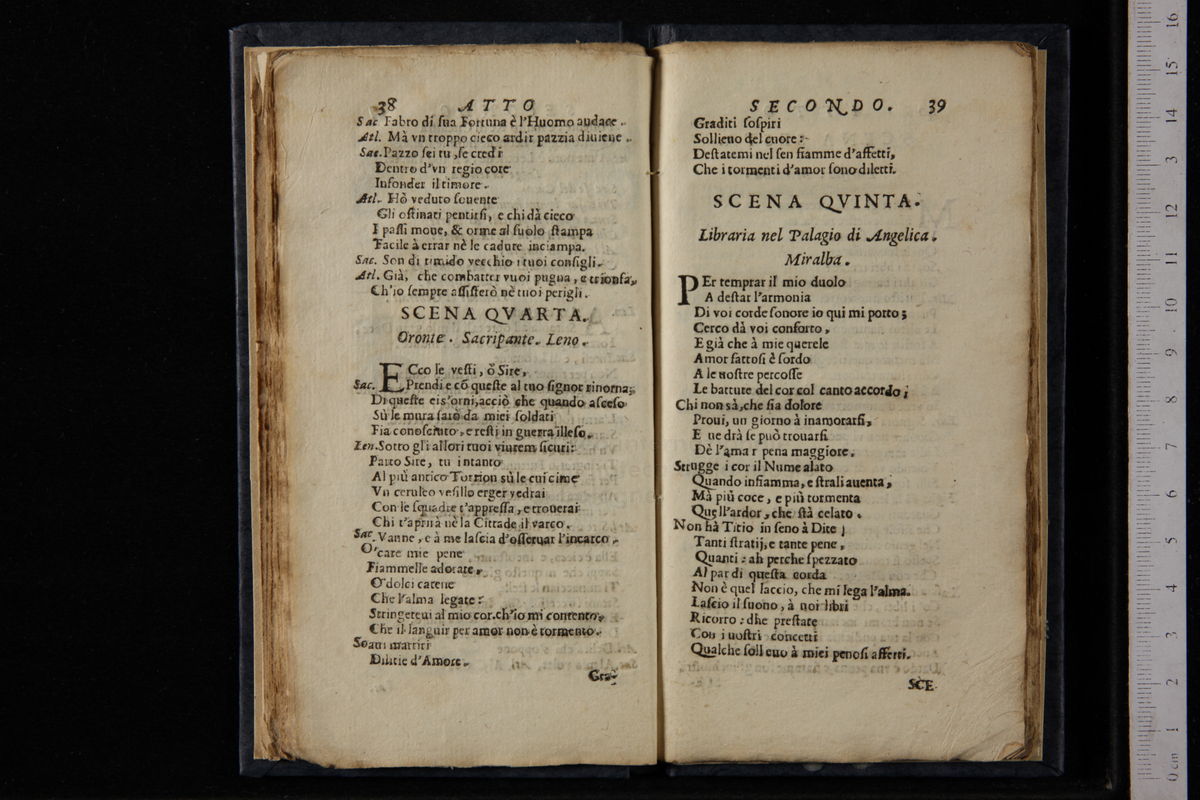 38 ATTO
Sac Fabro di sua Fortuna è l'Huomo audace.
Atl. Mà vn troppo cieco ardir pazzia diuiene.
Sac. Pazzo sei tu, se credi
Dentro d'vn regio core
Infonder il timore.
Atl. Hò veduto souente
Gli ostinati pentirsi, e chi dà cieco
I passi moue, & orme al suolo stampa
Facile à errar nè le cadute inciampa.
Sac. Son di timido vecchio i tuoi consigli.
Atl. Già, che combatter vuoi pugna, e trionfa,
Ch'io sempre assisterò nè tuoi perigli.
SCENA QVARTA.
Oronte. Sacripante. Leno.
ECco le vesti, ò Sire,
Sac. Prendi e cō queste al tuo signor ritorna;
Di queste ei s'orni, acciò che quando asceso
Sù le mura sarò da miei soldati
Fia conosciuto, e resti in guerra illeso.
Len. Sotto gli allori tuoi viurem sicuri:
Parto Sire, tu intanto
Al più antico Torrion sù le cui cime
Vn ceruleo vesillo erger vedrai
Con le squadre t'appressa, e trouerai
Chi t'aprirà nè la Cittade il varco.
Sac. Vanne, e à me lascia d'osseruar l'incarco.
O' care mie pene
Fiammelle adorate,
O' dolci catene
Che l'alma legate:
Stringeteui al mio cor. ch'io mi contento,
Che il languir per amor non è tormento.
Soaui martiri
Dilitie d'Amore.
Gra-
SECONDO. 39
Graditi sospiri
Sollieuo del cuore:
Destatemi nel sen fiamme d'affetti,
Che i tormenti d'amor sono diletti.
SCENA QVINTA.
Libraria nel Palagio di Angelica.
Miralba.
PEr temprar il mio duolo
A destar l'armonia
Di voi corde sonore io qui mi porto;
Cerco dà voi conforto,
E già che à mie querele
Amor fattosi è sordo
A le nostre percosse
Le batture del cor col canto accordo;
Chi non sà, che sia dolore
Proui, un giorno à inamorarsi,
E ue drà se può trouarsi
Dè l'ama r pena maggiore.
Strugge i cor il Nume alato
Quando infiamma, e strali auenta,
Mà più coce, e più tormenta
Quell'ardor, che stà celato.
Non hà Titio in seno à Dite;
Tanti stratij, e tante pene,
Quanti: ah perche spezzato
Al par di questa corda
Non è quel laccio, che mi lega l'alma.
Lascio il suono, à uoi libri
Ricorro: dhe prestate
Con i uostri concetti
Qualche soll euo à miei penosi affetti.
SCE